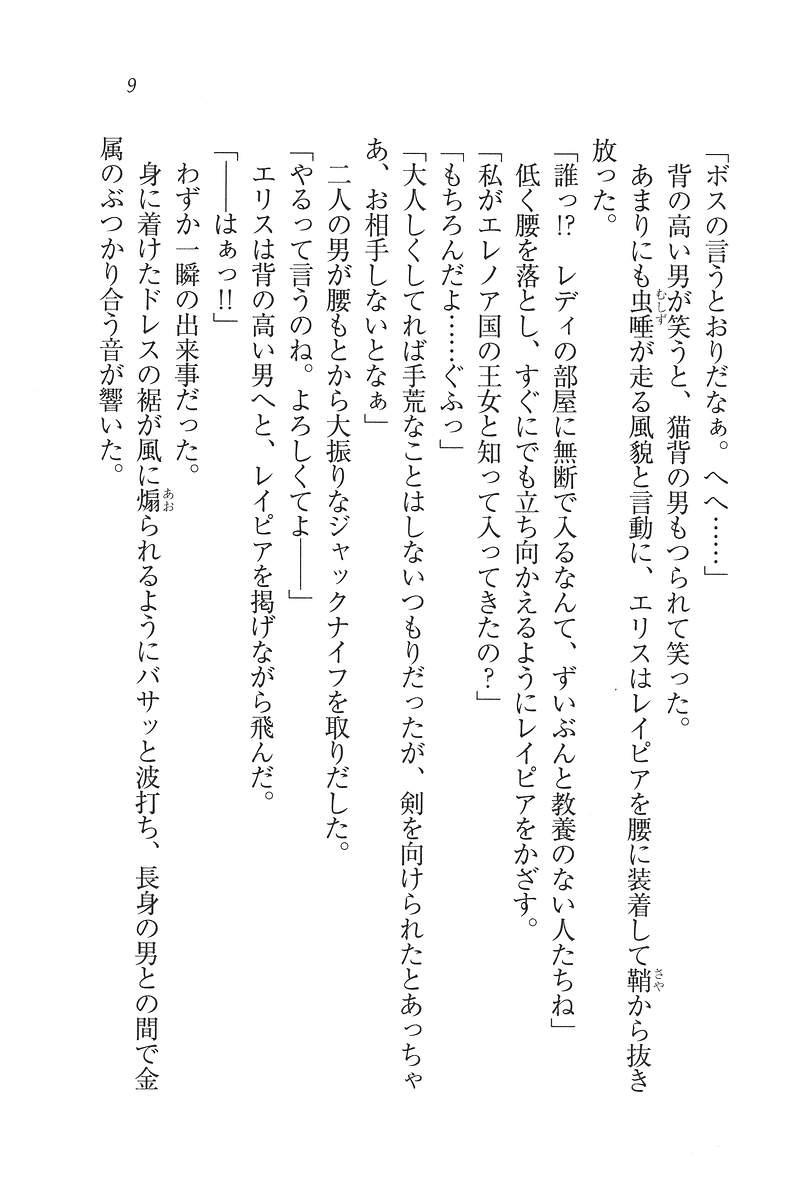 9
「ボスの言うとおりだなぁ。へへ……」
背の高い男が笑うと、猫背の男もつられて笑った。
あまりにも虫唾が走る風貌と言動に、エリスはレイピアを腰に装着して鞘から抜き
放った。
「誰っ!?　レディの部屋に無断で入るなんて、ずいぶんと教養のない人たちね」
低く腰を落とし、すぐにでも立ち向かえるようにレイピアをかざす。
「私がエレノア国の王女と知って入ってきたの？」
「もちろんだよ……ぐふっ」
「大人しくしてれば手荒なことはしないつもりだったが、剣を向けられたとあっちゃ
あ、お相手しないとなぁ」
二人の男が腰もとから大振りなジャックナイフを取りだした。
「やるって言うのね。よろしくてよ――」
エリスは背の高い男へと、レイピアを掲げながら飛んだ。
「――はぁっ!!」
わずか一瞬の出来事だった。
身に着けたドレスの裾が風に煽られるようにバサッと波打ち、長身の男との間で金
属のぶつかり合う音が響いた。
むしず
さや
あお